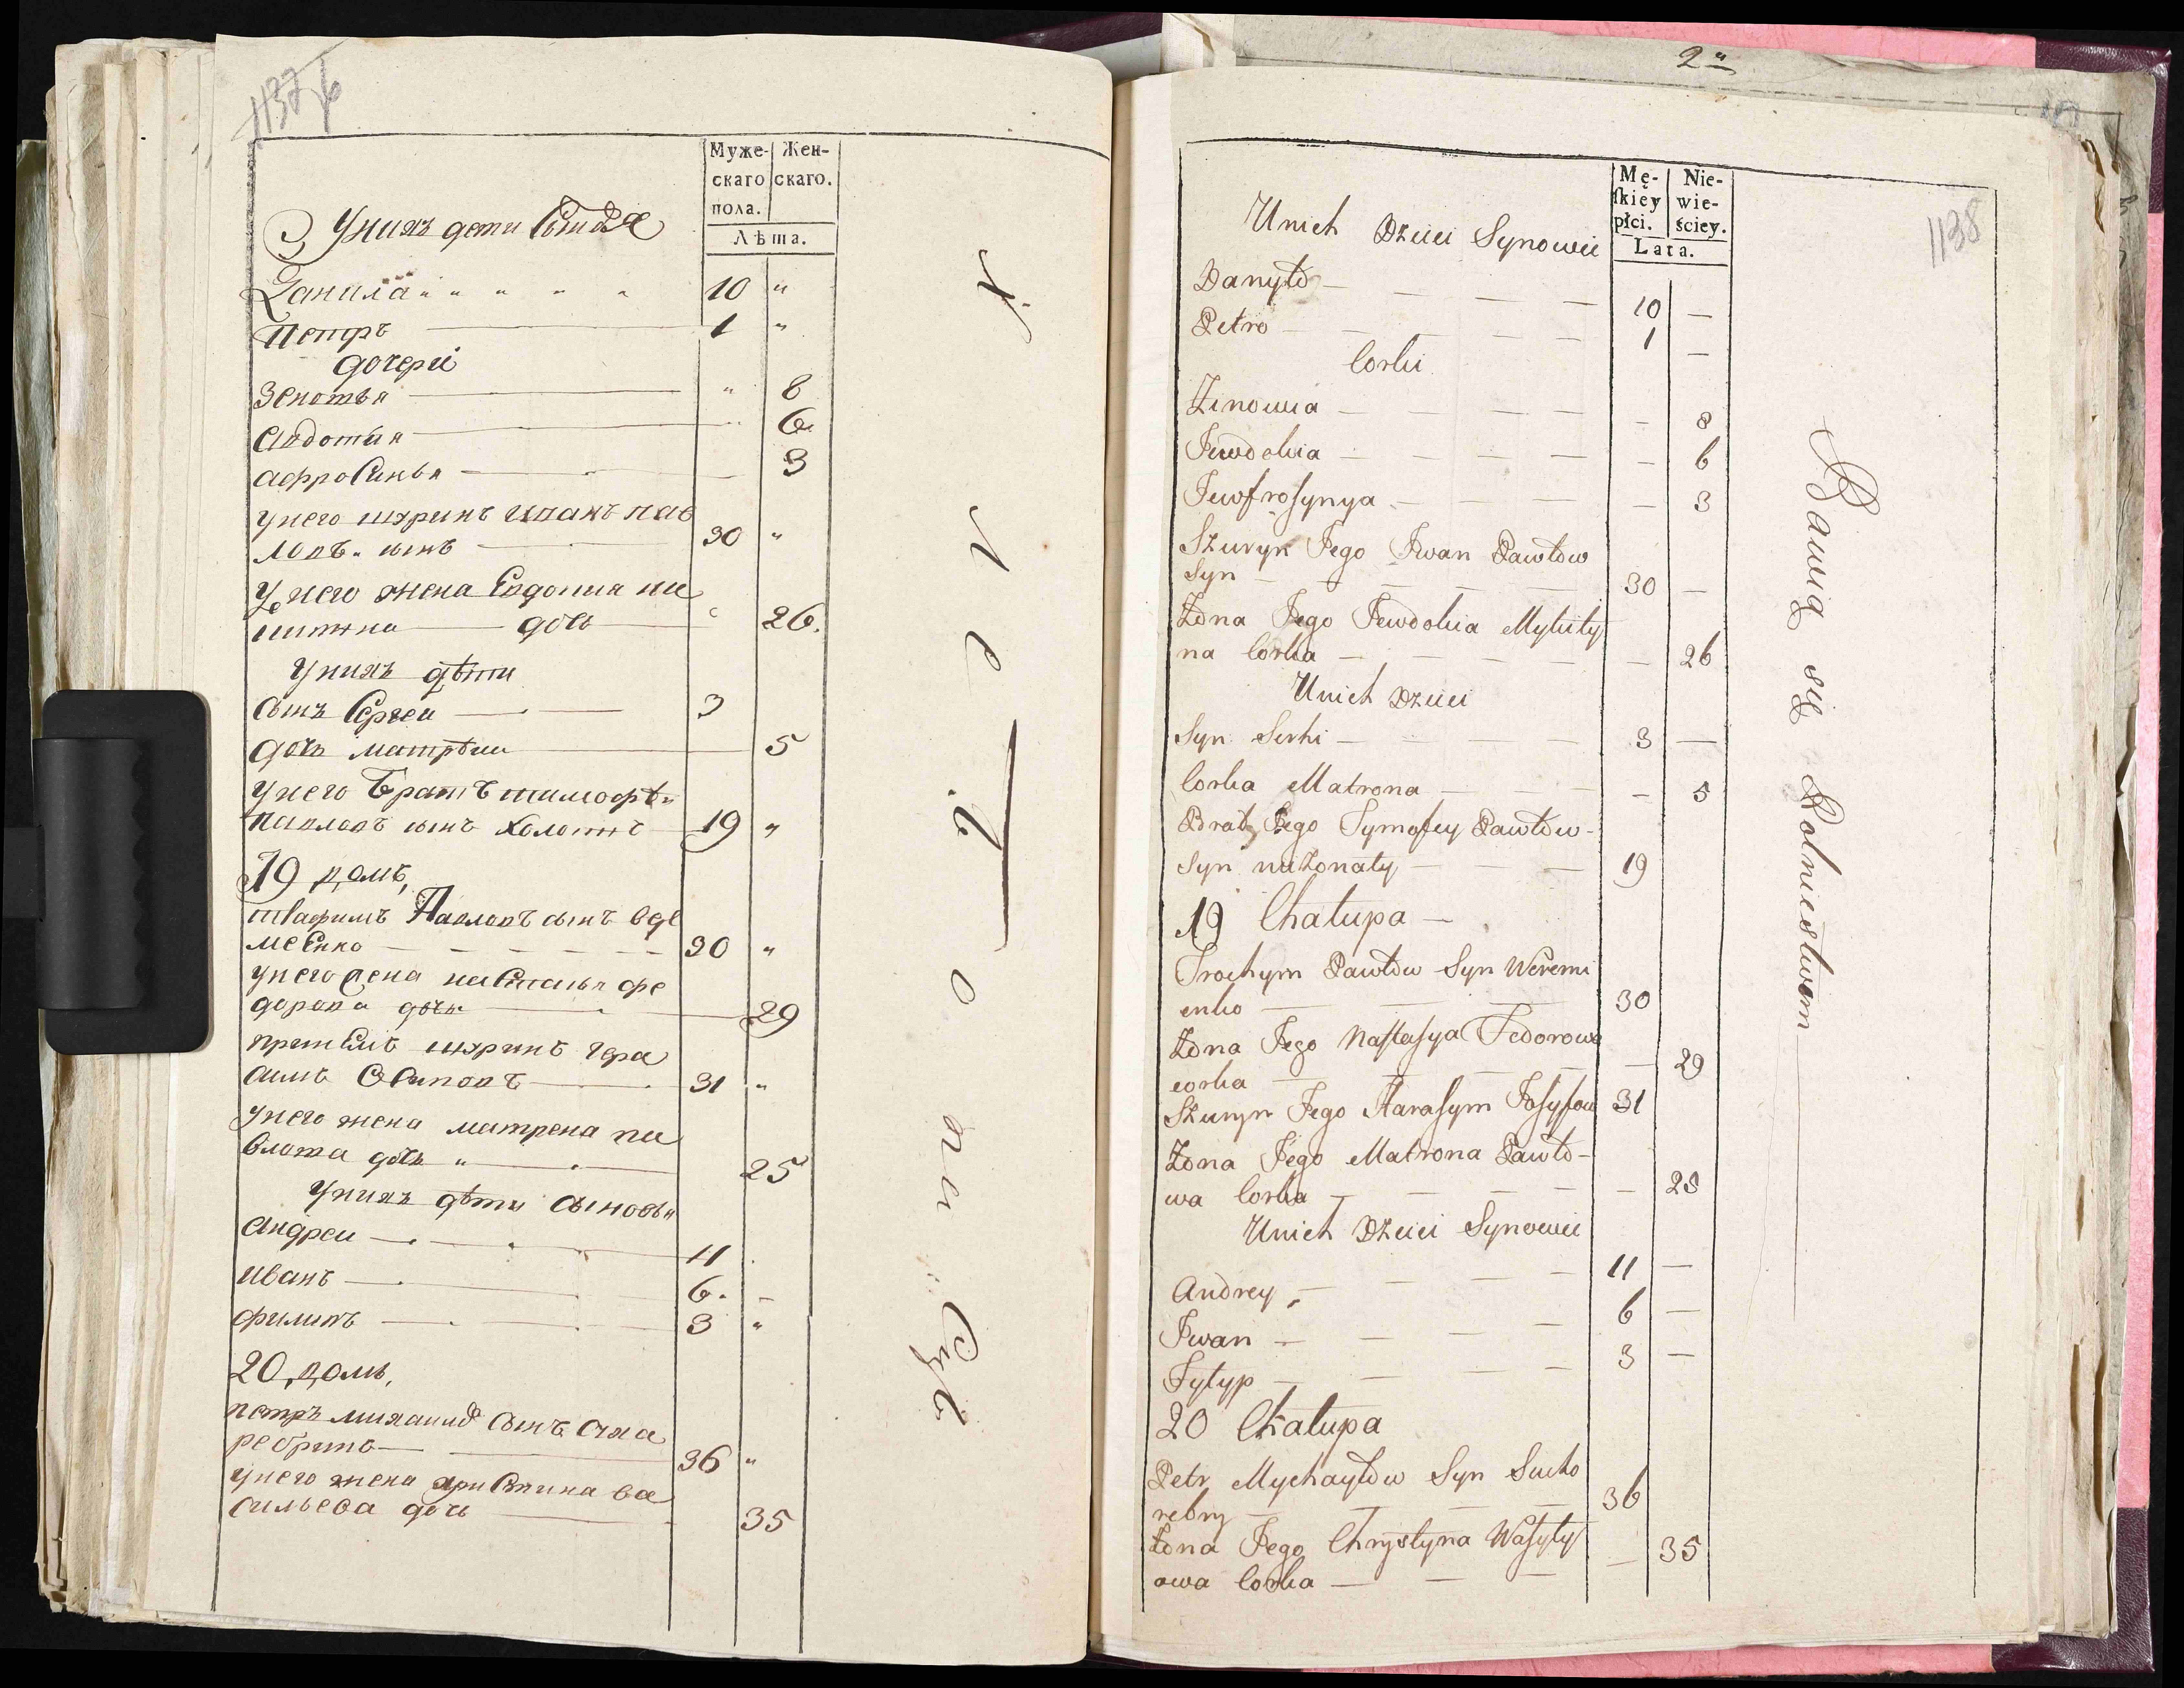 1137 b
Муже-
скаго
пола.
Жен-
скаго.
Лѣта.
Унихъ дети
Данила 10 "
Петръ 1 "
дочери
Зеновъя " 8
Авдотия 6
афросинья 3
унего шуринъ иванъ пав
ловъ сынъ 30 "
унего жена Евдокия ни
китина дочь 26.
унихъ дѣти
сынъ Сергеи 3
дочь матрѣна 5
унего братъ тимофѣи
павловъ сынъ холостъ 19 "
19 домъ,
Павловъ сынъ
30 "
унего жена настасья фе
дорова дочь 29
шуринъ гера
симъ Осиповъ 31 "
унего жена матрена па
влова дочь " 25
унихъ дѣти сыновья
андреи 11
иванъ 6.
филипъ 3 "
20 домъ,
петръ михаилов сынъ суха
ребринъ 36 "
унего жена христина ва
сильева дочь 35
2я
1138
Mę-
ſkiey
płci.
Nie-
wie-
ściey.
Lata.
Unich Dzieci Synowie
Danyło 10 —
Petro 1 —
Corki
Zinowia — 8
Jewdokia — 6
Jewfroſynya — 3
Szuryn Jego Jwan Pawłow
Syn 30 —
Żona Jego Jewdokia Mykity
na Corka — 26
Unich Dzieci
Syn Serhi 3 —
Corka Matrona — 5
Brat Jego Tymofey Pawłow
Syn nieżonaty 19
19 Chałupa —
Trochym Pawłow Syn Weremi
enko 30
Żona Jego Naſtaſya Fedorowa
corka — 29
Szuryn Jego Haraſym Joſyfow 31
Żona Jego Matrona Pawło-
wa Corka — 25
Unich Dzieci Synowie
Andrey 11 —
Jwan 6 —
Fyłyp 3 —
20 Chałupa
Petr Mychayłow Syn Sucho
rebry 36
Żona Jego Chrystyna Waſyly
owa Corka — 35
Bawią się Rolnictwem